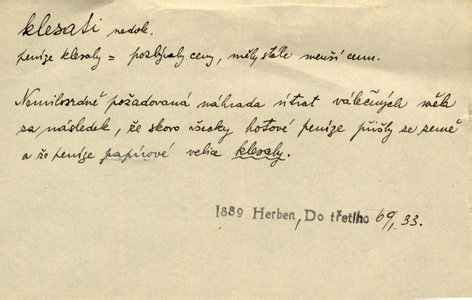 klesati nedok.
peníze klesaly = pozbývaly ceny, měly stále menší cenu.
Nemilosrdně požadovaná náhrada útrat válečných měla
za následek, že skoro všecky hotové peníze přišly ze země
a že peníze papírové velice klesaly.
1889 Herben, Do třetího 69, 33.